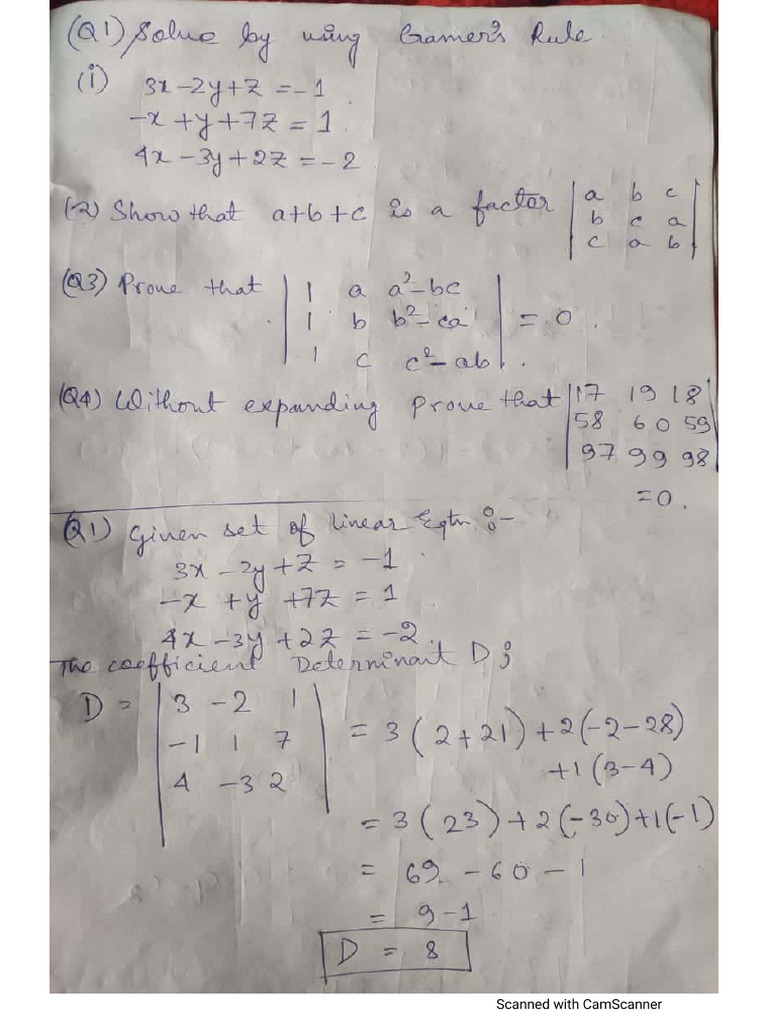 (Q1) Solve by using Cramer's Rule.
(i) 3x - 2y + z = -1
-x + y + 7z = 1
4x - 3y + 2z = -2
(2) Show that a+b+c is a factor | a b c |
| b c a |
| c a b |
(Q3) Prove that | 1 a a² - bc |
| 1 b b² - ca | = 0.
| 1 c c² - ab |.
(Q4) Without expanding prove that | 17 19 18 |
| 58 60 59 |
| 97 99 98 |
= 0.
Q1) Given set of linear Eqtn :-
3x - 2y + z = -1
-x + y + 7z = 1
4x - 3y + 2z = -2.
The coefficient Determinant D ;
D = | 3 -2 1 | = 3 ( 2 + 21 ) + 2 ( -2 - 28 )
| -1 1 7 | + 1 ( 3 - 4 )
| 4 -3 2 |
= 3 ( 23 ) + 2 ( -30 ) + 1 ( -1 )
= 69 - 60 - 1
= 9 - 1
D = 8
Scanned with CamScanner